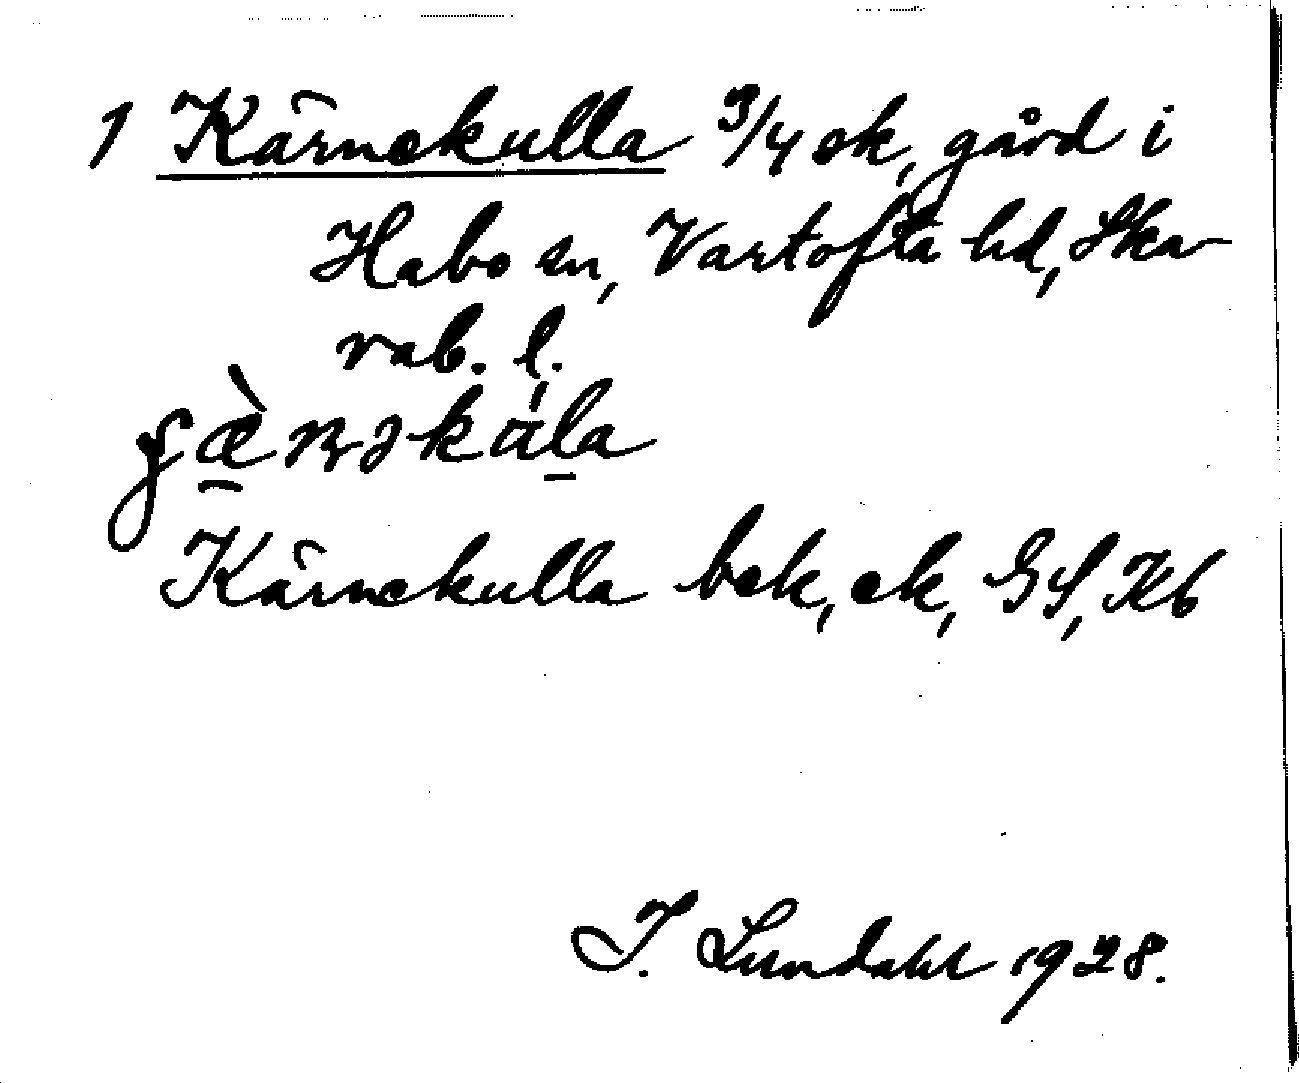 1 Kärnekulla 3/4 ek, gård i
Habo sn, Vartofta hd, Ska-
rab. l.
Kärnekulla bek, ek, GS, Kb
I. Lundahl 1928.